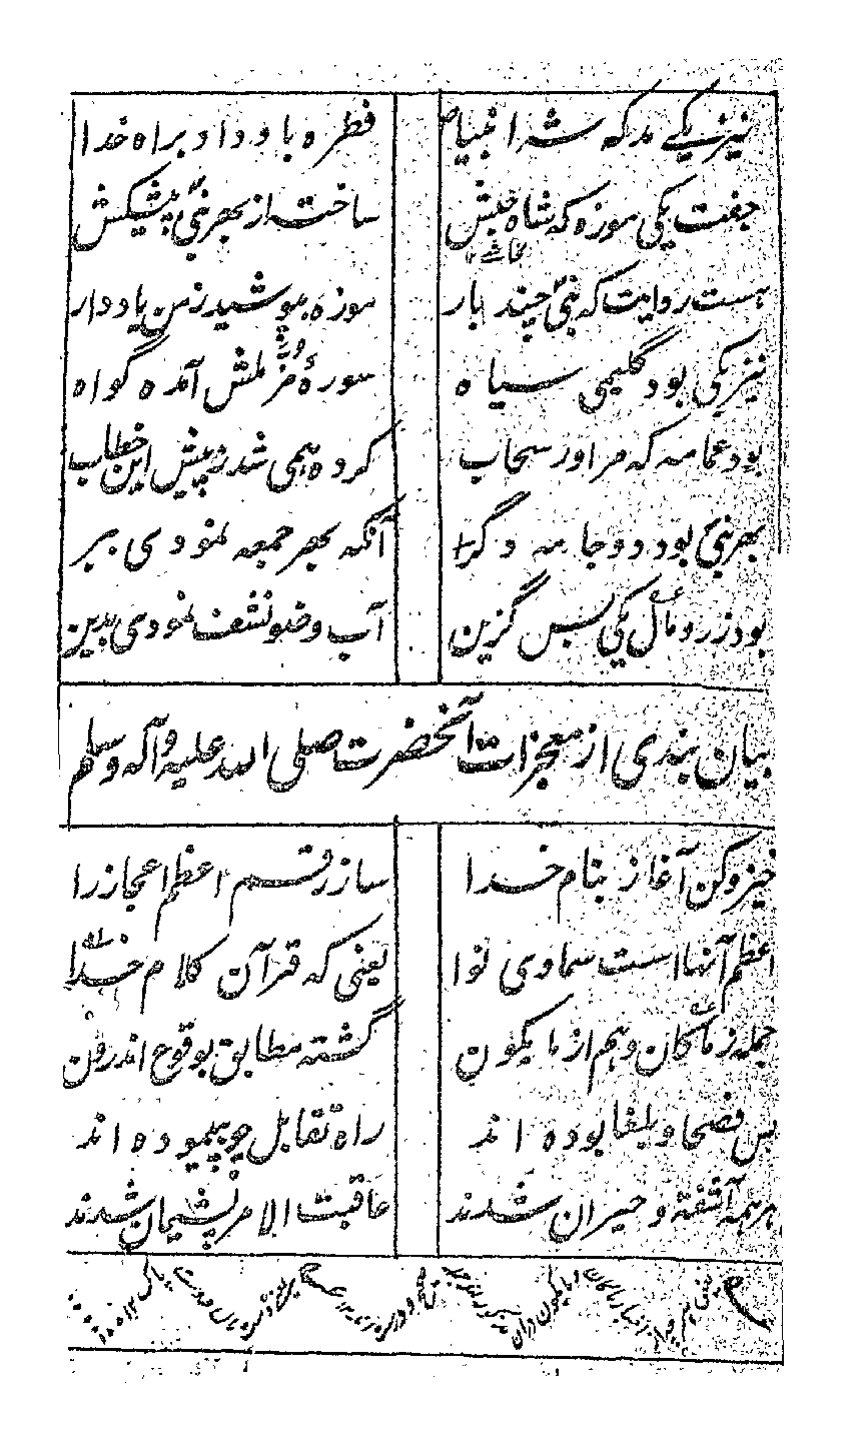 نیز یکی بد که شه انبیا ص فطره باو داد براه خدا
جفت یکی موزه که شاه حبش ساخته از بهر نبی پیشکش
نجاشے
هست روایت که نبی چند بار موزه بپوشید ز من یاد دار
نیز یکی بود گلیمی سیاه سورهٔ مزملش آمده گواه
بود عمامه که مر اورا سحاب کرده همی شد ز پیش این خطاب
بهر نبی بود دو جامه دگر آنکه بهر جمعه نمودی ببر
بود ز رومال یکی بس گزین آب وضو نشف نمودی بدین
بیان بندی از معجزات آنحضرت صلی الله علیه وآله وسلم
خیز و کن آغاز بنام خدا ساز رقم اعظم اعجاز را
اعظم آنها است سماوی نوا یعنی که قرآن کلام خدا
جمله ز ماکان و هم از ما یکون گشته مطابق بوقوع اندرون
بس فصحا و بلغا بوده اند راه تقابل چو پیموده اند
هر همه آشفته و حیران شدند عاقبت الامر پشیمان شدند